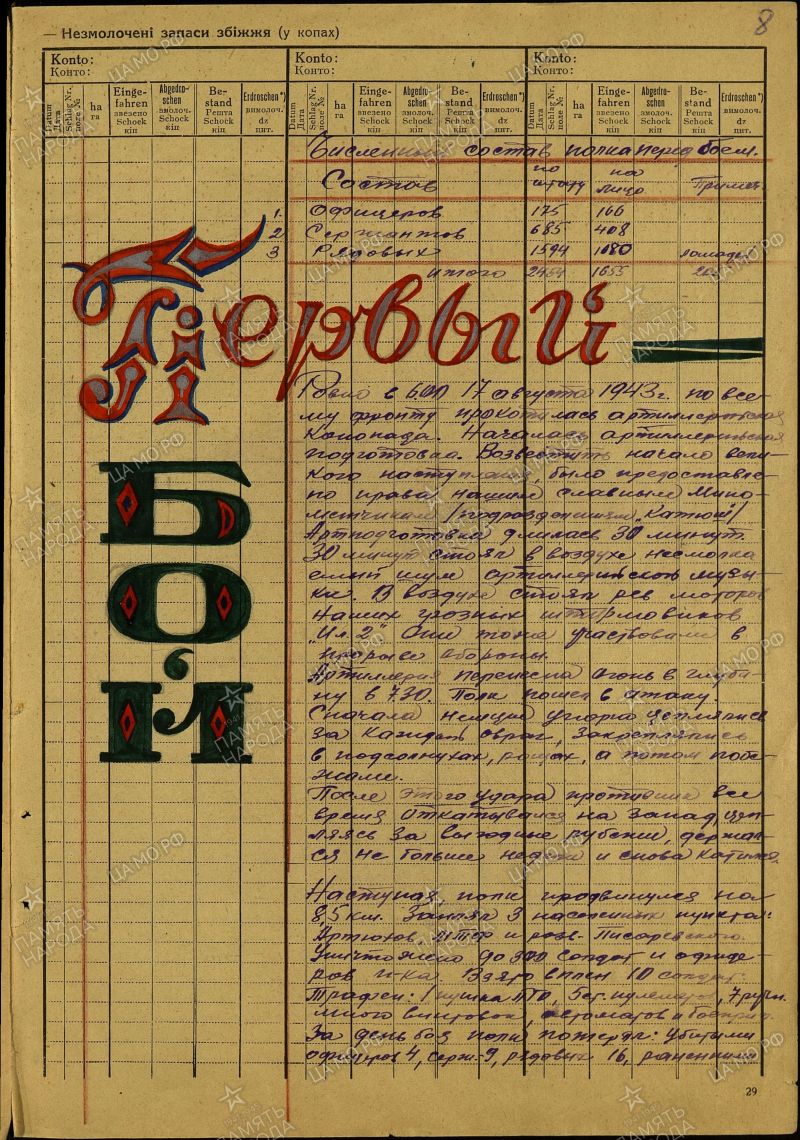 8
— Незмолочені запаси збіжжя (у копах)
Konto: Konto: Konto:
Конто: Конто: Конто:
Datum Дата Schlag Nr. поле № ha га Eingefahren звезено Schock кіп Abgedroschen змолоч. Schock кіп Bestand Решта Schock кіп Erdroschen*) вимолоч. dz цнт.
Datum Дата Schlag Nr. поле № ha га Eingefahren звезено Schock кіп Abgedroschen змолоч. Schock кіп Bestand Решта Schock кіп Erdroschen*) вимолоч. dz цнт.
Datum Дата Schlag Nr. поле № ha га Eingefahren звезено Schock кіп Abgedroschen змолоч. Schock кіп Bestand Решта Schock кіп Erdroschen*) вимолоч. dz цнт.
Численный состав полка перед боем.
Состав по штату на лицо Примеч.
1. Офицеров 175 166
2 Сержантов 685 408
3 Рядовых 1594 1080 лошадей
итого 2454 1655
Первый —
БОЙ
Ровно в 6.00 17 августа 1943 г. по все-
му фронту прокатилась артиллерийская
канонада. Началась артиллерийская
подготовка. Возвестить начало вели-
кого наступления, было предоставле-
но права нашим славным мино-
метчикам /подразделениям „Катюш"/
Артподготовка длилась 30 минут.
30 минут стоял в воздухе несмолка
емый шум артиллерийской музы-
ки. В воздухе стоял рев моторов
наших грозных штурмовиков
„Ил-2" Они тоже участвовали в
прорыве обороны.
Артиллерия перенесла огонь в глуби-
ну в 7.30. Полк пошел в атаку
Сначала немцы упорно цеплялись
за каждый овраг, закреплялись
в подсолнухах, рощах, а потом побе-
жали.
После этого удара противник все
время откатывался на запад, цеп-
ляясь за выгодные рубежи, держал-
ся не больше недели и снова катился.
Наступая полк продвинулся на
8,5 км. Заняв 3 населенных пункта:
Артюхов, МТФ и разв. Писаревского.
Уничтожено до 300 солдат и офице-
ров п-ка Взято в плен 10 солдат.
Трофеи: 1 пушка ПТО, 5 ст. пулеметов, 7 ручн.
много винтовок, автоматов и боеприп.
За день боя полк потерял: убитыми
офицеров 4, серж-9, рядовых 16, ранеными
29
ЦАМО РФ
ПАМЯТЬ НАРОДА